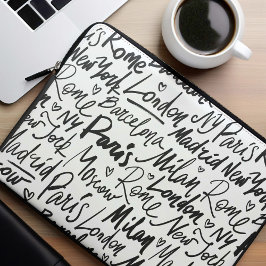 Paris Rome Barcelona
New York London NY Paris
Rome Barcelona Madrid New York
New York NY Paris Milan Rome
Madrid Moscow Rome London
Moscow Paris London Milan New York
Milan NY
London